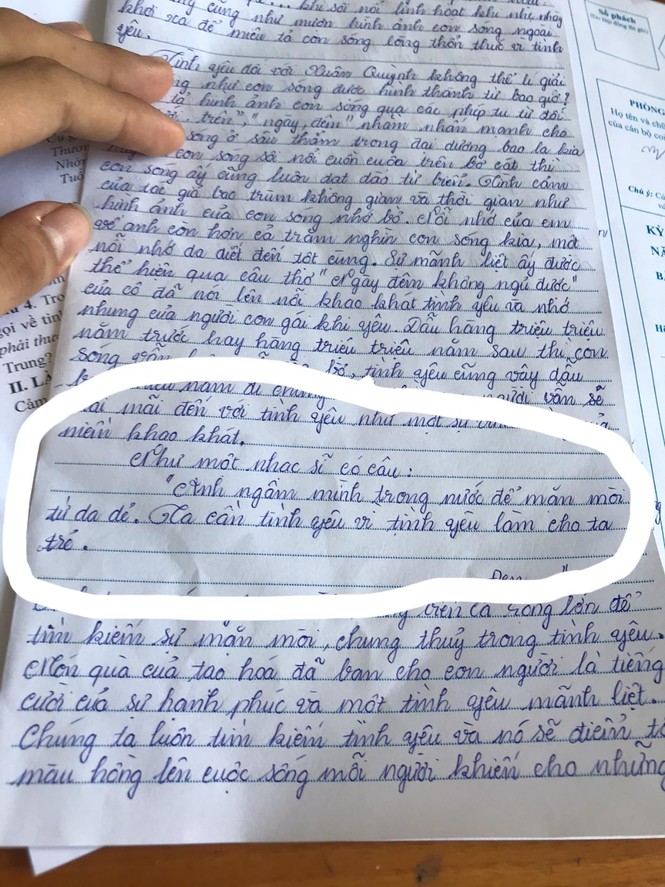 cũng như mượn hình ảnh con sóng ngoài
khơi xa để miêu tả con sóng lòng thổn thức vì tình
yêu.
Tình yêu đối với Xuân Quỳnh không thể lí giải
như con sóng được hình thành từ bao giờ?
tả hình ảnh con sóng qua các phép tu từ đối
trên", "ngày, đêm" nhằm nhấn mạnh cho
sóng ở sâu thẳm trong đại dương bao la kia
con sóng sô nổi cuồn cuộn trên bờ cát thì
con sóng ấy cũng luôn dạt dào từ biển. Tình cảm
của tác giả bao trùm không gian và thời gian như
hình ảnh của con sóng nhớ bờ. Nỗi nhớ của em
về anh còn hơn cả trăm nghìn con sóng kia, một
nỗi nhớ da diết đến tột cùng. Sự mãnh liệt ấy được
thể hiện qua câu thơ "Ngày đêm không ngủ được"
của cô đã nói lên nỗi khao khát tình yêu và nhớ
nhung của người con gái khi yêu. Dẫu hàng triệu triệu
năm trước hay hàng triệu triệu năm sau thì con
sóng vẫn bờ, tình yêu cũng vậy dẫu
năm đi chăng người vẫn sẽ
mãi đến với tình yêu như một sự
niềm khao khát.
Như một nhạc sĩ có câu:
"Anh ngâm mình trong nước để mặn mòi
từ da dẻ. Ta cần tình yêu vì tình yêu làm cho ta
trẻ.
Đen"
trên cả lòng lớn để
tìm kiếm sự mặn mòi, chung thuỷ trong tình yêu.
Món quà của tạo hoá đã ban cho con người là tiếng
cười của sự hạnh phúc và một tình yêu mãnh liệt.
Chúng ta luôn tìm kiếm tình yêu và nó sẽ điểm tô
màu hồng lên cuộc sống mỗi người khiến cho những
Số phách
PHÒNG
Họ tên và chữ
của cán bộ co
Chú ý:
KỲ
Thươn
Nhớ
Tuổ
4. Tro
gọi về tìn
phải thươ
Trung?
II. LÀ
Cảm